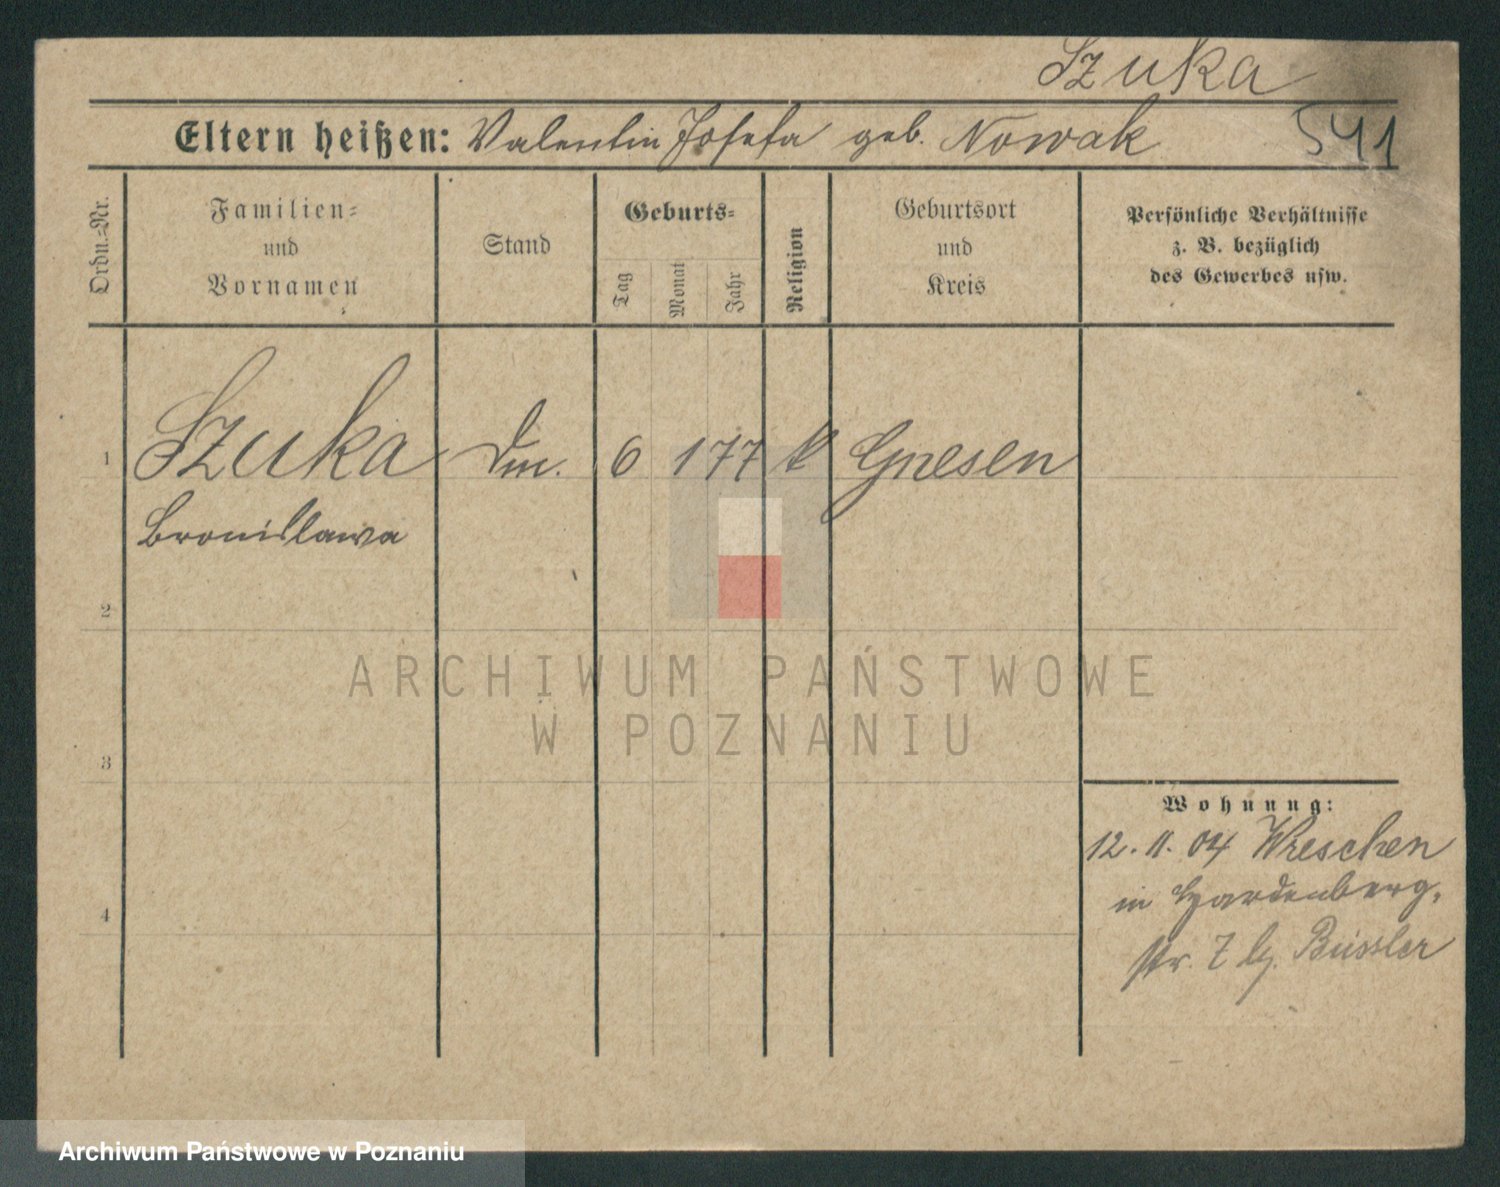 Szuka
Eltern heißen: Valentin Josefa geb. Nowak 541
Ordn.-Nr.
Familien-
und
Vornamen
Stand
Geburts-
Tag
Monat
Jahr
Religion
Geburtsort
und
Kreis
Persönliche Verhältnisse
z. B. bezüglich
des Gewerbes usw.
1 Szuka 6 1 77 k Gnesen
Bronislawa
2
3
4
Wohnung:
12. 11. 04 Wreschen
in Hardenberg-
str. 7 Büssler
ARCHIWUM PAŃSTWOWE
W POZNANIU
Archiwum Państwowe w Poznaniu